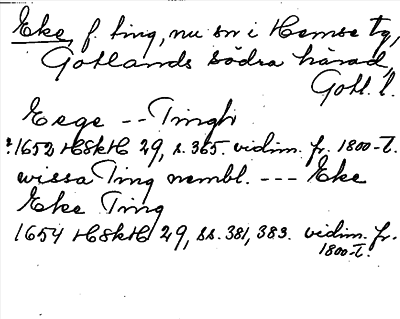 Eke f. ting, nu sn i Hemse tg,
Gotlands södra härad,
Gotl. l.
Eege -- Tingh
1652 HSkH 29, s. 365. vidim. fr. 1800-t.
wissa Ting nembl. --- Eke
Eke Ting
1654 HSkH 29, ss. 381, 383. vidim. fr.
1800-t.